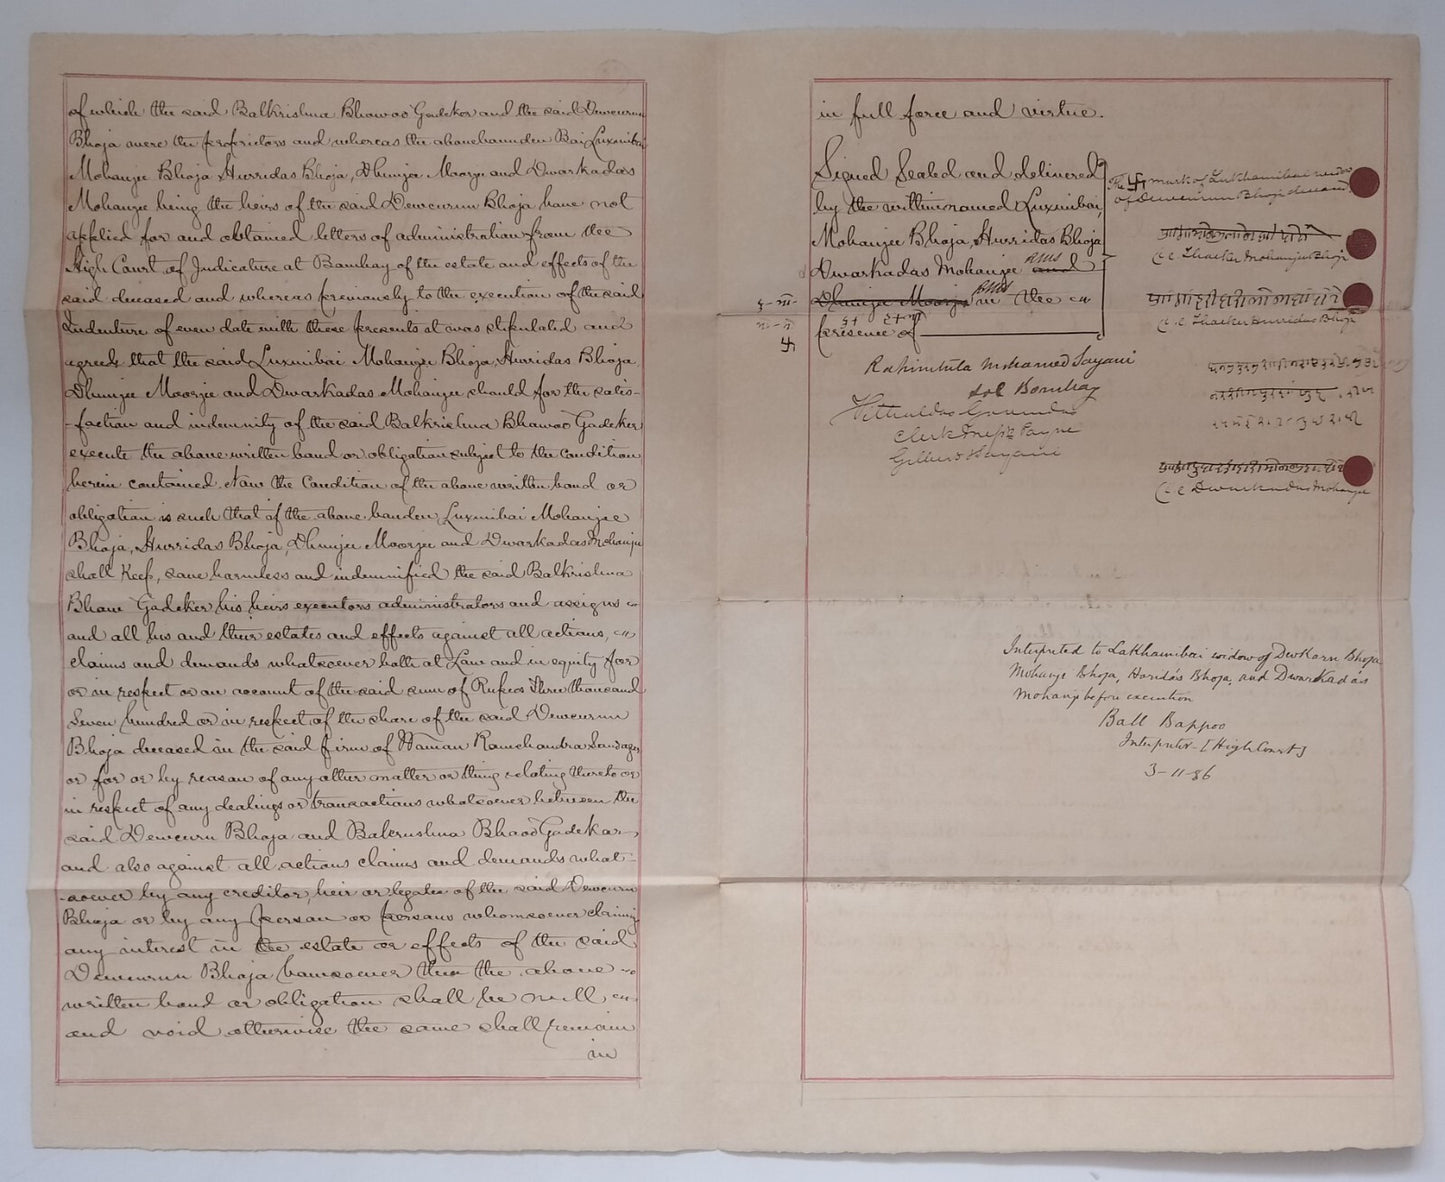 of which the said Balkrishna Bhawoo Gadeker and the said Dewcurun
Bhoja were the proprietors and whereas the abovebounden Bai Luxmibai
Mohanjee Bhoja Hurridas Bhoja, Dhunjee Moorjee and Dwarkadas
Mohanjee being the heirs of the said Dewcurun Bhoja have not
applied for and obtained letters of administration from the
High Court of Judicature at Bombay of the estate and effects of the
said deceased and whereas previously to the execution of the said
Indenture of even date with these presents it was stipulated and
agreed that the said Luxmibai Mohanjee Bhoja, Hurridas Bhoja
Dhunjee Moorjee and Dwarkadas Mohanjee should for the satis-
-faction and indemnity of the said Balkrishna Bhawoo Gadeker
execute the above written bond or obligation subject to the condition
herein contained. Now the Condition of the above written bond or
obligation is such that if the above bounden Luxmibai Mohanjee
Bhoja, Hurridas Bhoja, Dhunjee Moorjee and Dwarkadas Mohanjee
shall Keep, save harmless and indemnified the said Balkrishna
Bhawoo Gadeker his heirs executors administrators and assigns
and all his and their estates and effects against all actions,
claims and demands whatsoever both at Law and in equity for
or in respect or on account of the said sum of Rupees Three thousand
Seven hundred or in respect of the share of the said Dewcurun
Bhoja deceased in the said firm of Waman Ramchandra
or for or by reason of any other matter or thing relating thereto or
in respect of any dealings or transactions whatsoever between the
said Dewcurn Bhoja and Balcrushna Bhaoo Gadekar
and also against all actions claims and demands what-
-soever by any creditor, heir or legatee of the said Dewcurn
Bhoja or by any person or persons whomsoever claiming
any interest in the estate or effects of the said
Dewcurun Bhoja howsoever then the above
written bond or obligation shall be null
and void otherwise the same shall remain
in
in full force and virtue.
Signed Sealed and delivered
by the withinnamed Luxmibai,
Mohanjee Bhoja, Hurridas Bhoja
Dwarkadas Mohanjee and
Dhunjee Moorjee in the
presence of
Rahimtula Mohamed Sayani
Sol Bombay
Vithuldas
Clerk to Messrs Payne
Gilbert & Sayani
The 卐 mark of Lakhamibai widow
of Dewcurun Bhoja deceased
Thacker Mohanjee Bhoja
Thacker Hurridas Bhoja
Dwarkadas Mohanjee
卐
Interpreted to Lakhamibai widow of Dewkarn Bhoja
Mohanji Bhoja, Haridás Bhoja, and Dwarkadás
Mohanji before execution
Ball Bappoo
Interpreter - [High Court]
3-11-86